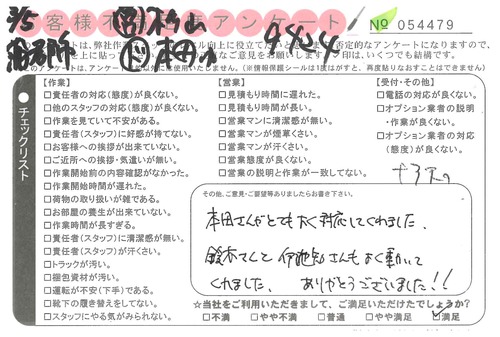 お客様不満足度アンケート
No 054479
3/5
本田
9424
【作業】
□責任者の対応(態度)が良くない。
□他のスタッフの対応(態度)が良くない。
□作業を見ていて不安がある。
□責任者(スタッフ)に好感が持てない。
□お客様への挨拶が出来ていない。
□ご近所への挨拶・気遣いが無い。
□作業開始前の内容確認がなかった。
□作業開始時間が遅れた。
□荷物の取り扱いが雑である。
□お部屋の養生が出来ていない。
□作業時間が長すぎる。
□責任者(スタッフ)に清潔感が無い。
□責任者(スタッフ)が汗くさい。
□トラックが汚い。
□梱包資材が汚い。
□運転が不安(下手)である。
□靴下の履き替えをしてない。
□スタッフにやる気がみられない。
【営業】
□見積もり時間に遅れた。
□見積もり時間が長い。
□営業マンに清潔感が無い。
□営業マンが煙草くさい。
□営業マンが汗くさい。
□営業態度が良くない。
□営業の説明と作業が一致してない。
【受付・その他】
□電話の対応が良くない。
□オプション業者の説明
・作業が良くない。
□オプション業者の対応
(態度)が良くない。
チェックリスト
その他、ご意見・ご要望等ありましたらお書き下さい。
本田さんがとても良く対応してくれました。
鈴木さんと伊地知さんもよく動いて
くれました。 ありがとうございました!!
☆当社をご利用いただきまして、ご満足いただけたでしょうか?
□不満 □やや不満 □普通 □やや満足 □満足